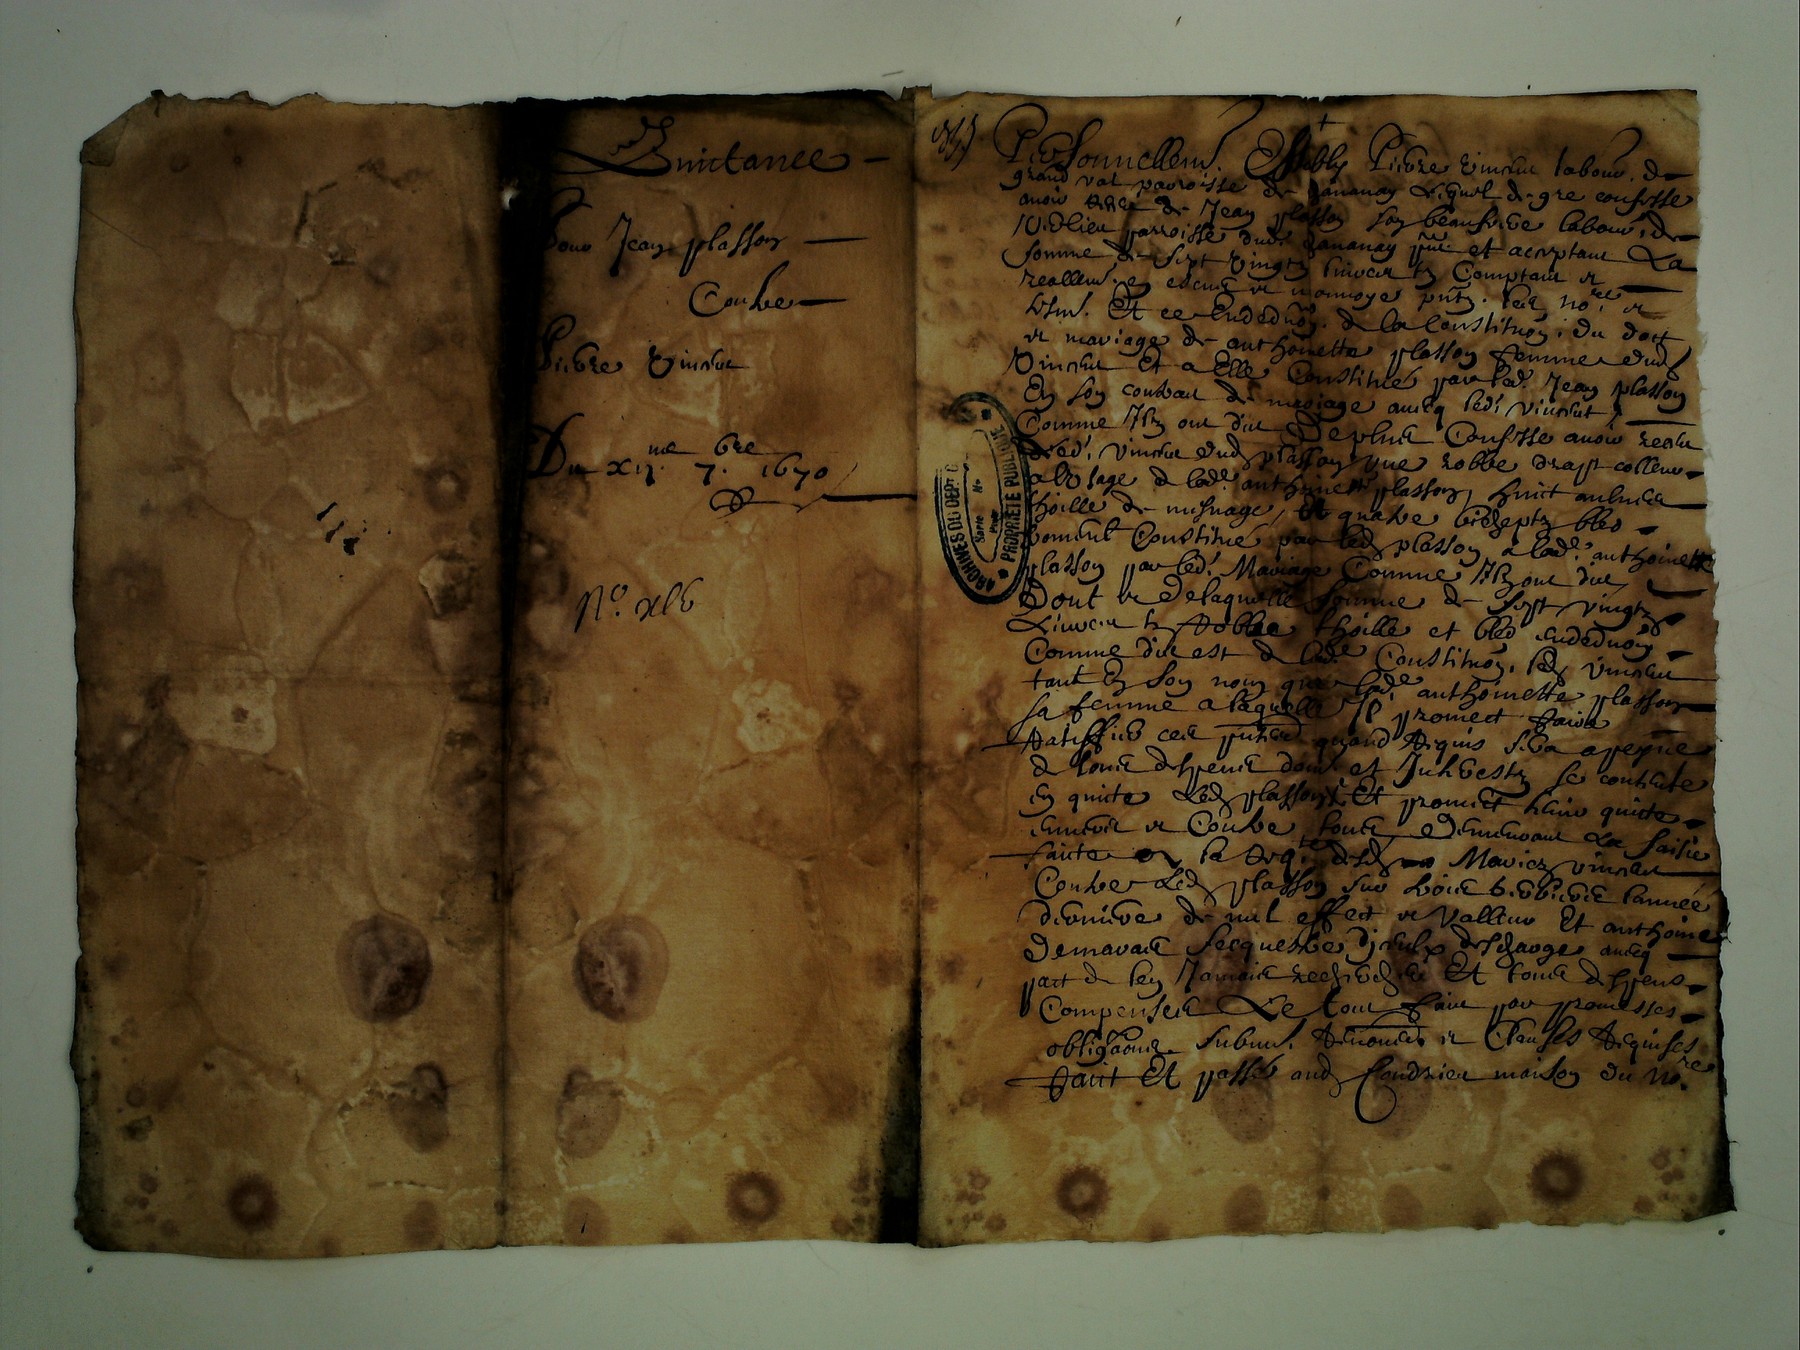 Quictance
Pour Jean plasson
Contre
Pierre Vincent
Du xij.me 7.bre 1670
No. xl6
Personnellemt. Estably Pierre Vincent labour. de
grand val parroisse de Lequel de gre confesse
avoir de Jean plasson son beaufrere labour. de
parroisse dud. pnt. et acceptant La
somme de sept vingtz livres tz Comptant et
reallemt. en escus et monnoye pntz. les no.re et
Et ce Endeduon. de la Constituon. du dott
et mariage de anthoinette plasson femme dud.
Vincent Et a Elle Constitués par led. Jean plasson
En son contrat de mariage avecq led. vincent
Comme Ilz ont dit De plus Confesse avoir receu
led. vincent dud. plasson une robbe drapt colleur
a l'usage de lad. anthoinette plasson, huict aulnes
thoille de mesnage, Et quatre bicheptz bled
froment Constitué par led. plasson a lad. anthoinette
plasson par led. Mariage Comme Ilz ont dit
Dont et De laquelle somme de sept vingtz
Livres tz Robbe thoille et bled endeduon
Comme dit est de lad. Constituon. led. Vincent
tant En son nom que lad. anthoinette plasson
sa femme a laquelle Il promect faire
Ratiffier ces pntes quand Requis sera a peyne
de tous despens dom. et Intherestz se contente
en quitte Led. plasson Et promect tenir quitte
envers et Contre tous, Demeurant La saisie
faite a la Req.te desd. Mariez vincent
Contre Led. plasson sur l'année
derniere de nul effect et valleur Et anthoine
Demarais sequestre d'iceulx deschargé avecq
pact de len Jamais rechercher Et tous despens
Compensés Le tout faict par promesses
obligaons. submi. Renonces et Clauses Requises
faict Et passé aud. maison du no.re
ARCHIVES DU DEPT
Serie No
PROPRIETE PUBLIQUE